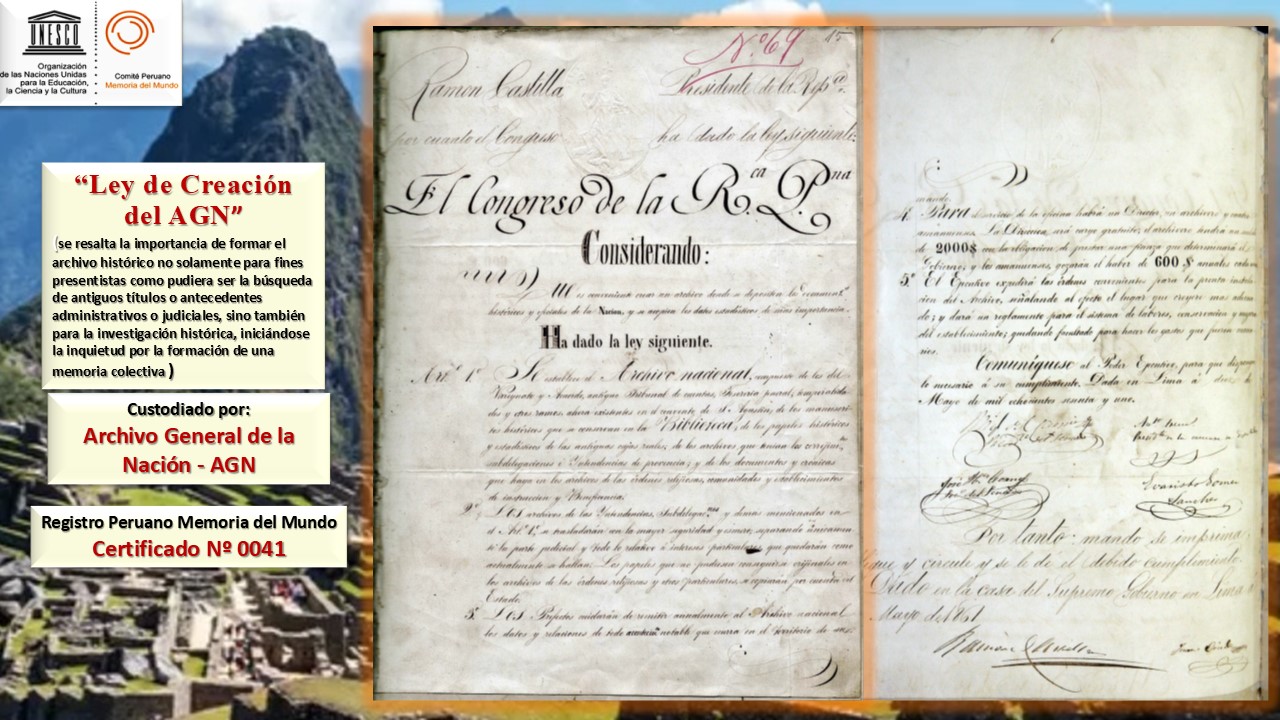 UNESCO
Organización
de las Naciones Unidas
para la Educación,
la Ciencia y la Cultura
Comité Peruano
Memoria del Mundo
“Ley de Creación
del AGN”
(se resalta la importancia de formar el
archivo histórico no solamente para fines
presentistas como pudiera ser la búsqueda
de antiguos títulos o antecedentes
administrativos o judiciales, sino también
para la investigación histórica, iniciándose
la inquietud por la formación de una
memoria colectiva )
Custodiado por:
Archivo General de la
Nación - AGN
Registro Peruano Memoria del Mundo
Certificado Nº 0041
Nº 69 15
Ramon Castilla Presidente de la Repca.
por cuanto el Congreso ha dado la ley siguiente:
El Congreso de la R.ca P.na
Considerando:
es conveniente crear un archivo donde se depositen los
históricos y oficiales de la Nacion, y se acopien los datos estadísticos de mas importancia.
Ha dado la ley siguiente.
Art.º 1º Se establece el Archivo nacional, compuesto de los del
antiguo Tribunal de cuentas,
y otros ramos ahora existentes en el convento de S. Agustin, de los manuscri-
tos históricos que se conservan en la Biblioteca, de los papeles históricos
y estadísticos de las antiguas cajas reales, de los archivos que tenian las
subdelegaciones é Intendencias de provincia; y de los documentos y crónicas
que haya en los archivos de las órdenes religiosas, comunidades y establecimientos
de instruccion y Beneficencia.
2º Los archivos de las Intendencias, y demas mencionados en
el Artº 1º se trasladarán con la mayor seguridad y esmero, separando únicamen-
te la parte judicial y todo lo relativo á intereses particulares que quedarán como
actualmente se hallan. Los papeles que no puedan conseguirse originales en
los archivos de las órdenes religiosas y otros particulares, se copiarán por cuenta del
Estado.
3. Los Prefectos cuidarán de remitir anualmente al Archivo nacional
los datos y relaciones de todo notable que ocurra en el territorio de su
mando.
Para el servicio de la oficina habrá un Director, un archivero y cuatro
amanuenses. La Direccion será cargo gratuito; el archivero tendrá un
de 2000$ con la obligacion de prestar una fianza que determinará el
Gobierno; y los amanuenses, gozarán el haber de 600 $ anuales cada uno.
5º El Ejecutivo expedirá las órdenes convenientes para la pronta instala-
cion del Archivo, señalando al efecto el lugar que creyere mas
do; y dará un reglamento para el sistema de labores, conservacion y mejora
del establecimiento; quedando facultado para hacer los gastos que fueren necesa-
rios.
Comuníquese al Poder Ejecutivo, para que disponga
lo necesario á su cumplimiento. Dada en Lima á
Mayo de mil ochocientos sesenta y uno.
Evaristo Gomez
Sanchez
Por tanto: mando se imprima,
que y circule y se le dé el debido cumplimiento.
Dado en la casa del Supremo Gobierno en Lima
Mayo de 1861
Ramon Castilla